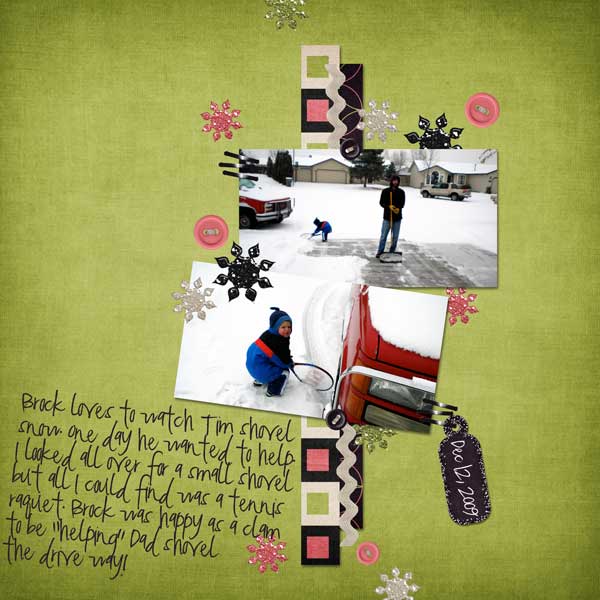 Brock loves to watch Tim shovel
snow one day he wanted to help
I looked all over for a small shovel
but all I could find was a tennis
raquet. Brock was happy as a clam
to be "helping" Dad shovel
the drive way!
Dec 12, 2009